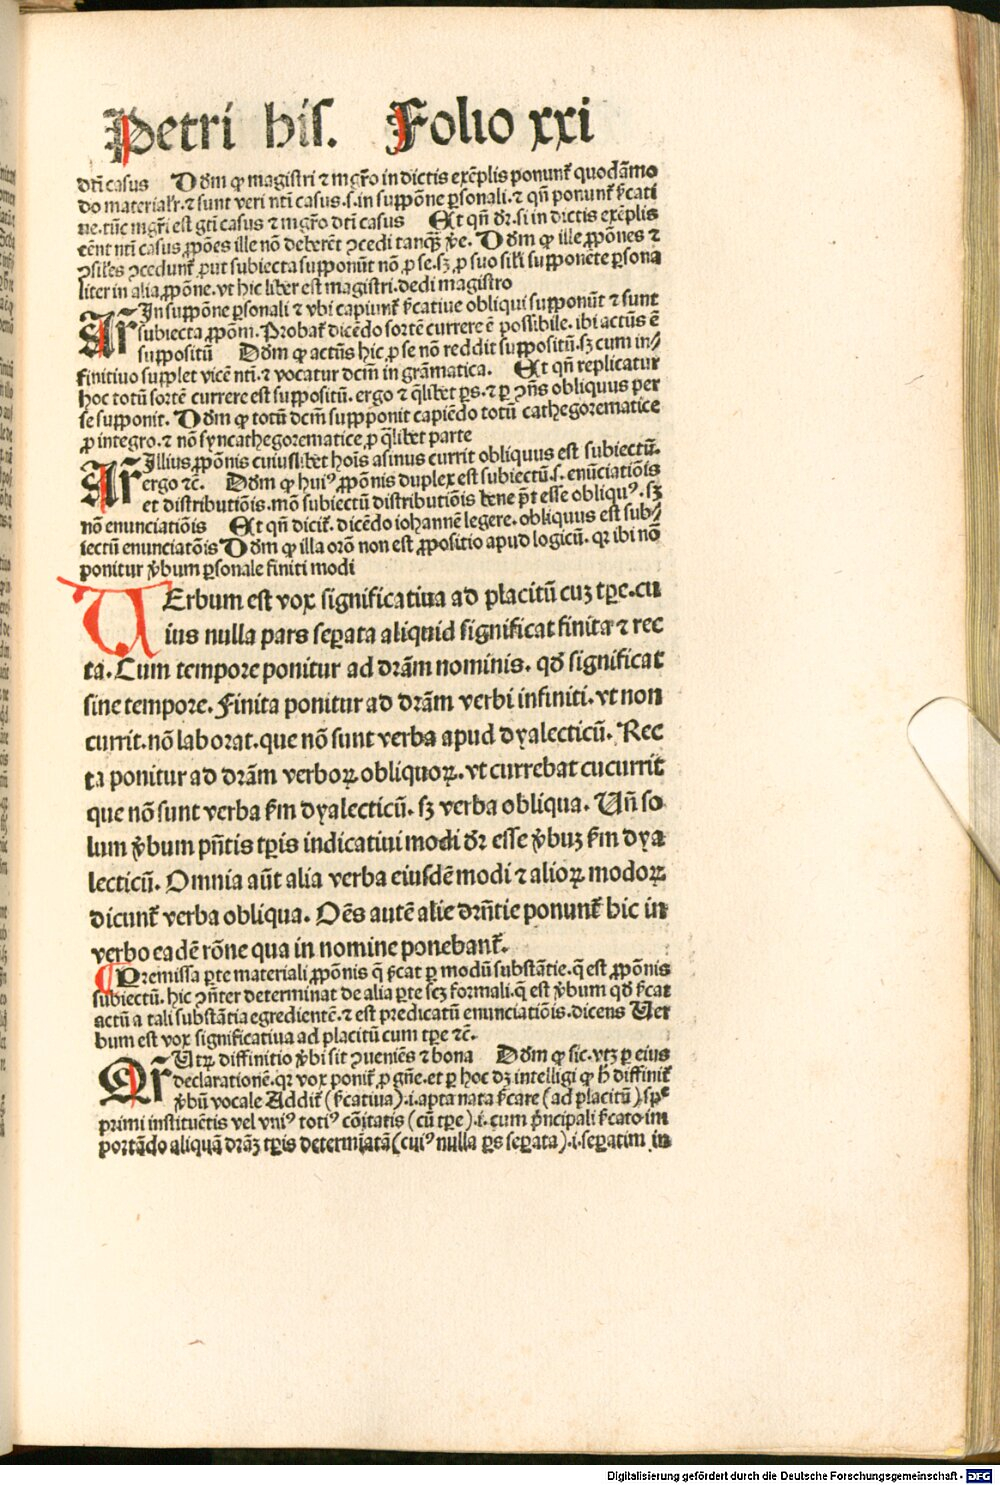 Petri his. Folio xxi
dn̄i casus Dōm ꝙ magistri ⁊ mgr̄o in dictis exēplis ponunt᷑ quodāmo
do materialr̄.⁊ sunt veri nt̄i casus.s.in suppōne ꝑsonali.⁊ qn̄ ponunt᷑ ſ̄cati
ue.tūc mgr̄i est gt̄i casus ⁊ mgr̄o dt̄i casus Et qn̄ dr̄.si in dictis exēplis
eēnt nt̄i casus ꝓpōes ille nō deberēt ꝯcedi tanqȝ ṽe. Dōm ꝙ ille ꝓpōnes ⁊
ꝯsiles ꝯcedunt᷑ put subiecta supponūt nō ꝓ se.sȝ ꝓ suo sili supponēte ꝑsona
liter in alia ꝓpōne.vt hic liber est magistri.dedi magistro
Ar̄ In suppōne ꝑsonali ⁊ vbi capiunt᷑ ſ̄catiue obliqui supponūt ⁊ sunt
subiecta ꝓpōnū.Probat᷑ dicēdo sortē currere ē possibile.ibi actūs ē
suppositū Dōm ꝙ actūs hic ꝓ se nō reddit suppositū.sȝ cum in⸗
finitiuo supplet vicē nt̄i.⁊ vocatur dcm̄ in grāmatica. Et qn̄ replicatur
hoc totū sortē currere est suppositū. ergo ⁊ q̄libet ꝑs.⁊ ꝑ ꝯn̄s obliquus per
se supponit. Dōm ꝙ totū dcm̄ supponit capiēdo totū cathegorematice
ꝓ integro.⁊ nō syncathegorematice ꝓ q̄libet parte
Ar̄ Illius ꝓpōnis cuiuslibet hoīs asinus currit obliquus est subiectū.
ergo ⁊c̄. Dōm ꝙ huiꝰ ꝓpōnis duplex est subiectū.s. enūciatiōis
et distributiōis.mō subiectū distributiōis bene pn̄t esse obliquꝰ.sȝ
nō enunciatiōis Et qn̄ dicit᷑. dicēdo iohannē legere.obliquus est sub⸗
iectū enunciatōis Dōm ꝙ illa orō non est ꝓpositio apud logicū. qr ibi nō
ponitur ṽbum ꝑsonale finiti modi
UErbum est vox significatiua ad placitū cuȝ tꝑe.cu
ius nulla pars seꝑata aliquid significat finita ⁊ rec
ta.Cum tempore ponitur ad dr̄am nominis. qd̄ significat
sine tempore.Finita ponitur ad dr̄am verbi infiniti.vt non
currit.nō laborat.que nō sunt verba apud dyalecticū. Rec
ta ponitur ad dr̄am verboꝝ obliquoꝝ.vt currebat cucurrit
que nō sunt verba ſ̄m dyalecticū.sȝ verba obliqua. Un̄ so
lum ṽbum pn̄tis tꝑis indicatiui modi dr̄ esse ṽbuȝ ſ̄m dya
lecticū.Omnia aūt alia verba eiusdē modi ⁊ alioꝝ modoꝝ
dicunt᷑ verba obliqua. Oēs autē alie drn̄tie ponunt᷑ hic in
verbo eadē rōne qua in nomine ponebant᷑.
Premissa ꝑte materiali ꝓpōnis q̄ ſ̄cat ꝑ modū substātie.q̄ est ꝓpōnis
subiectū.hic ꝯn̄ter determinat de alia ꝑte scȝ formali.q̄ est ṽbum qd̄ ſ̄cat
actū a tali substātia egredientē.⁊ est predicatū enunciatiōis.dicens Uer
bum est vox significatiua ad placitū cum tꝑe ⁊c̄.
Qr̄ Utꝝ diffinitio ṽbi sit ꝯueniēs ⁊ bona Dōm ꝙ sic.vtȝ ꝑ eius
declarationē.qr vox ponit᷑ ꝓ gn̄e.et ꝑ hoc dȝ intelligi ꝙ h̄ diffinit᷑
ṽbū vocale Addit᷑ (ſ̄catiua).i.apta nata ſ̄care (ad placitū).spe
primi instituētis vel vniꝰ totiꝰ cōitatis (cū tꝑe).i.cum pn̄cipali ſ̄cato im
portādo aliquā dr̄aȝ tꝑis determiatā(cuiꝰ nulla ꝑs seꝑata).i.seꝑatim in